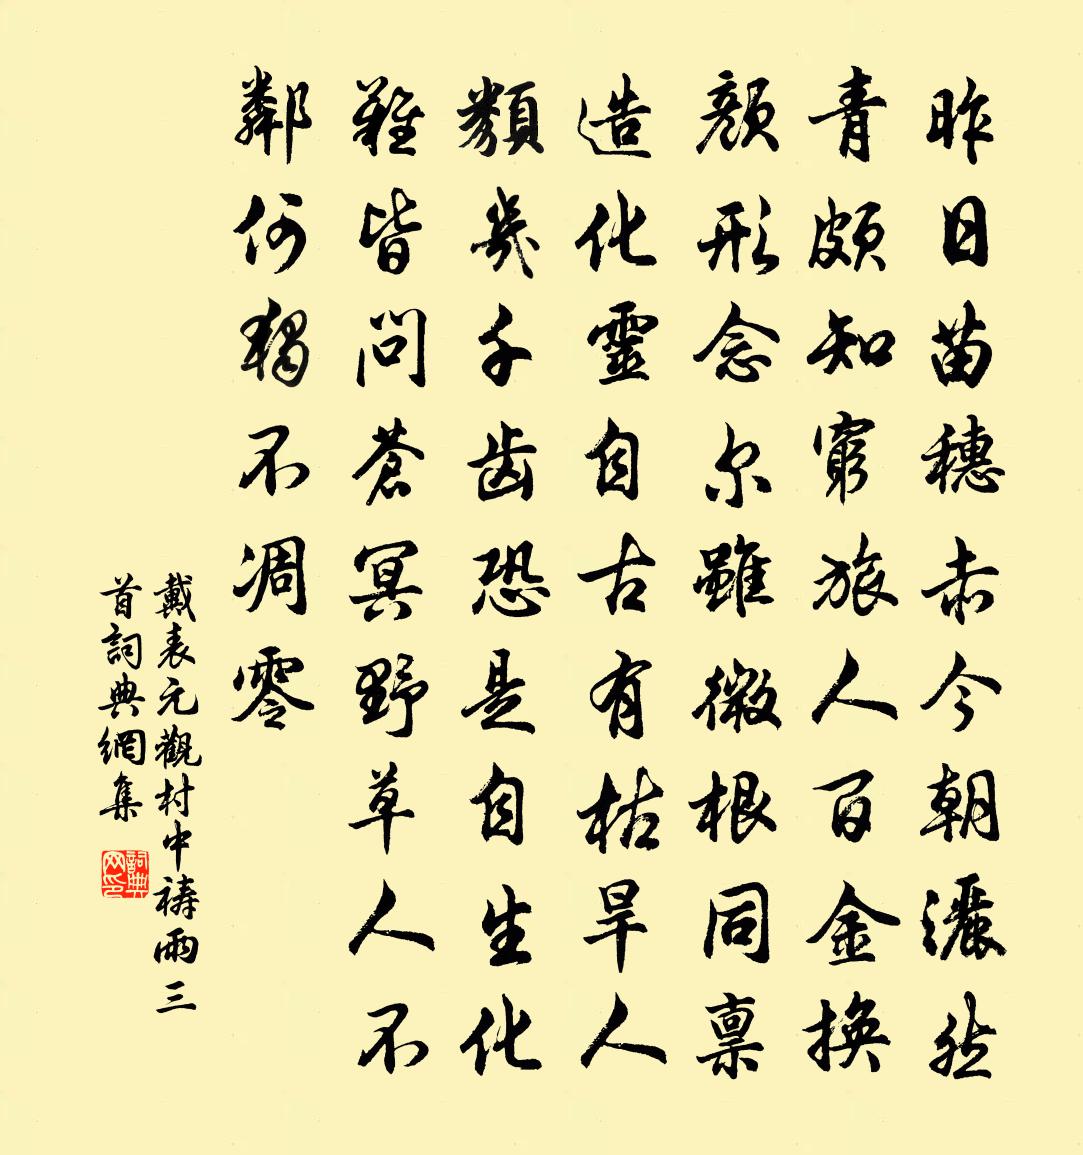 昨日苗穗赤今朝灑然
青頗知窮旅人百金換
顏形念尔雖微根同禀
造化靈自古有枯旱人
類幾千齿恐是自生化
難皆問蒼冥野草人不
鄰何獨不凋零
戴表元觀村中祷雨三
首詞典網集
詞典
网印